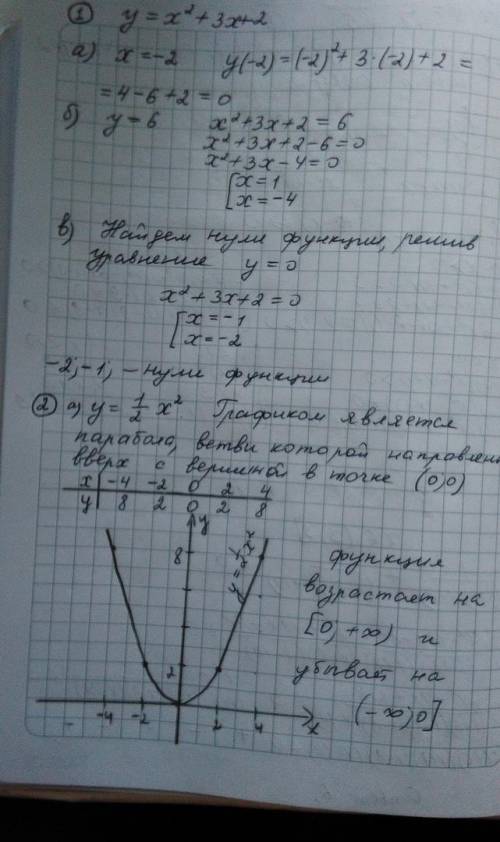 ① y = x² + 3x + 2
а) x = -2 y(-2) = (-2)² + 3·(-2) + 2 =
= 4 - 6 + 2 = 0
б) y = 6 x² + 3x + 2 = 6
x² + 3x + 2 - 6 = 0
x² + 3x - 4 = 0
[x = 1
[x = -4
в) Найдем нули функции, решив
уравнение y = 0
x² + 3x + 2 = 0
[x = -1
[x = -2
-2; -1; - нули функции
② а) y = 1/2 x² Графиком является
парабола, ветви которой направлены
вверх с вершиной в точке (0;0)
x | -4 -2 0 2 4
y | 8 2 0 2 8
y
8
y = 1/2 x²
2
-4 -2 2 4 x
функция
возрастает на
[0; +∞) и
убывает на
(-∞; 0]